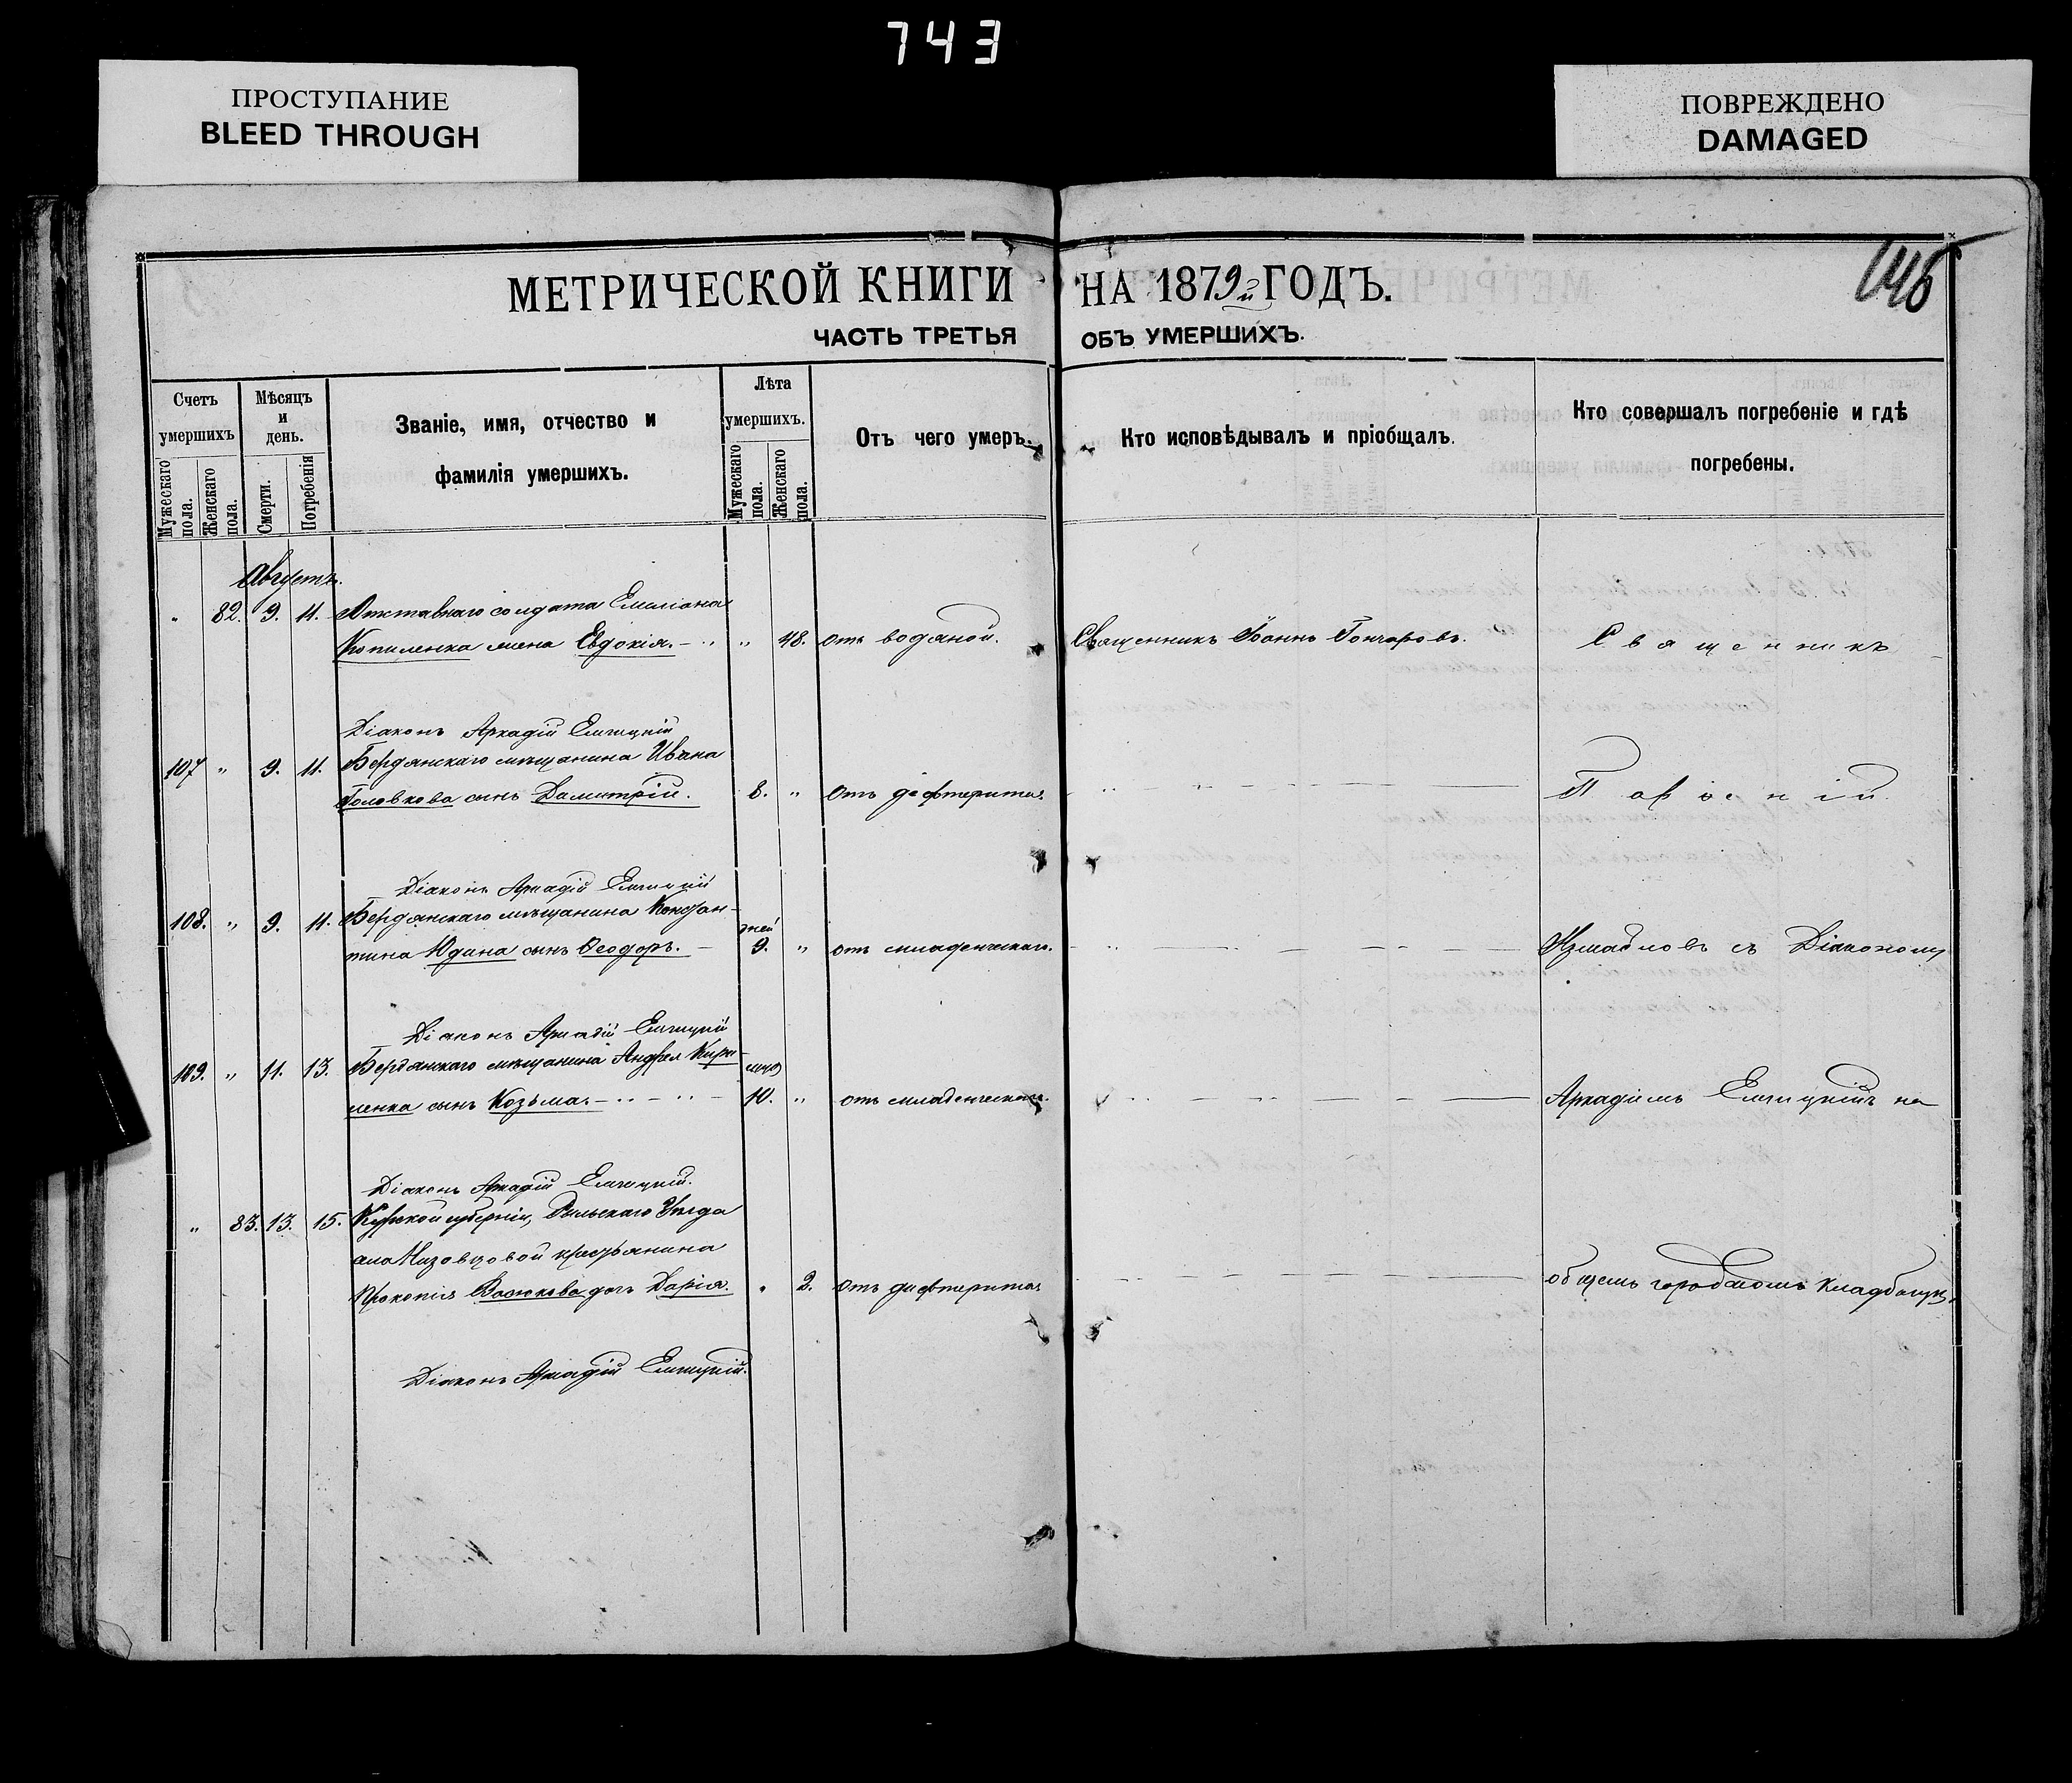 743
ПРОСТУПАНИЕ
BLEED THROUGH
ПОВРЕЖДЕНО
DAMAGED
146
МЕТРИЧЕСКОЙ КНИГИ НА 1879й ГОДЪ.
ЧАСТЬ ТРЕТЬЯ ОБЪ УМЕРШИХЪ.
Счетъ умершихъ
Мужескаго пола.
Женскаго пола.
Мѣсяцъ и день.
Смерти.
Погребенія
Званіе, имя, отчество и фамилія умершихъ.
Лѣта умершихъ.
Мужескаго пола.
Женскаго пола.
Отъ чего умеръ.
Кто исповѣдывалъ и пріобщалъ.
Кто совершалъ погребеніе и гдѣ погребены.
Августъ.
" 82. 9. 11. Отставнаго солдата Емиліана
Копиленка жена Евдокія. " 48. отъ водяной. Священникъ Іоаннъ Гончаровъ. Священникъ
Діаконъ Аркадій
107 " 9. 11. Бердянскаго мѣщанина Ивана
Головкова сынъ Димитрій. 8. " отъ дифтерита
Діаконъ Аркадій
108. " 9. 11. Бердянскаго мѣщанина Констан-
тина Юдина сынъ Ѳеодоръ. дней 9. " отъ младенческаго. Измаиловъ съ Діакономъ
Діаконъ Аркадій
109. " 11. 13. Бердянскаго мѣщанина Андрея Кири-
ленка сынъ Козьма. 10. " отъ младенческаго. Аркадіемъ на
Діаконъ Аркадій
" 83. 13. 15. Курской губерніи, Рыльскаго Уѣзда
села Низовцовой крестьянина
Прокопія Васюкова дочь Дарія. " 2. отъ дифтерита общемъ городскомъ кладбищѣ.
Діаконъ Аркадій